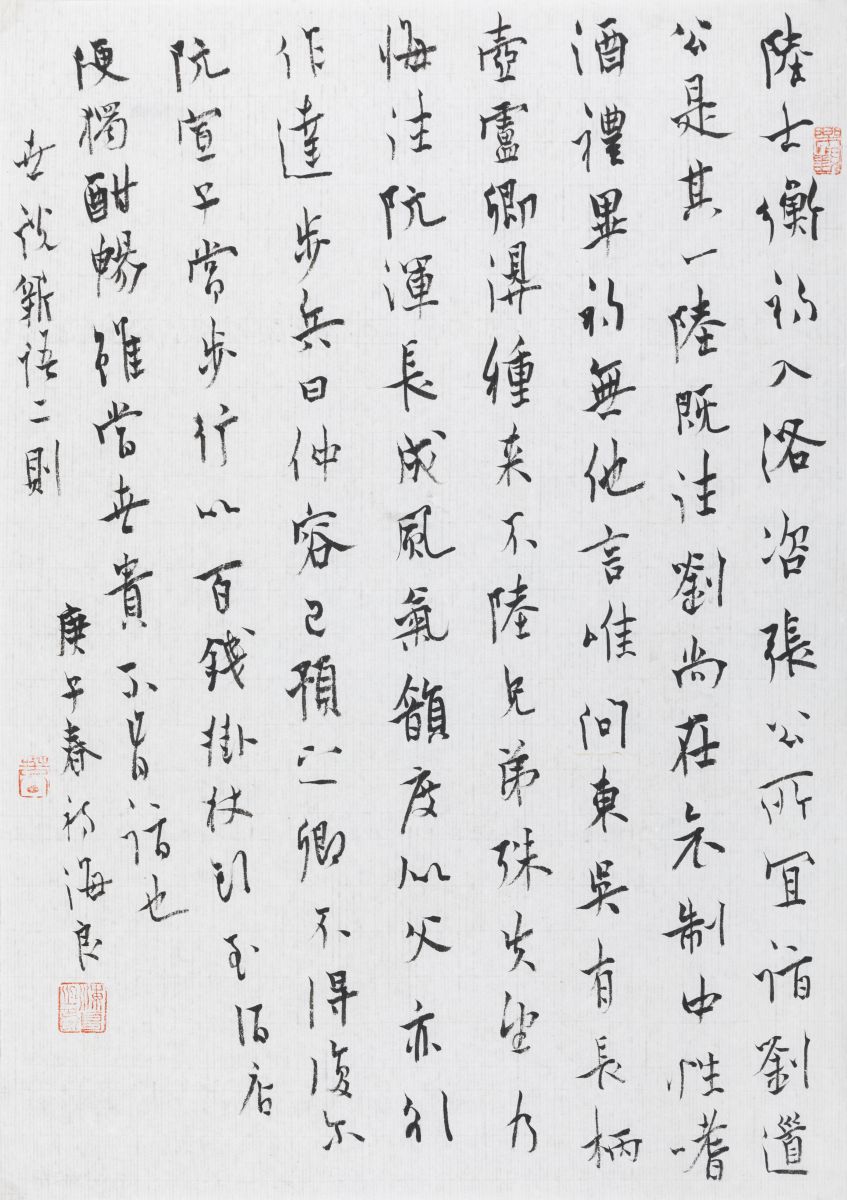 陸士衡初入洛咨張公所宜詣劉道
公是其一陸既往劉尚在哀制中性嗜
酒禮畢初無他言唯問東吳有長柄
壺盧卿得種來不陸兄弟殊失望乃
悔往阮渾長成風氣韻度似父亦欲
作達步兵曰仲容已預之卿不得復尔
阮宣子常步行以百錢掛杖頭至酒店
便獨酣暢雖當世貴不肯詣也
世說新語二則
庚子春初海良